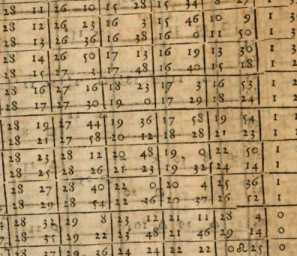 28 11 26 10 15 28 15 34 8 27 1 3
28 12 26 23 16 3 15 46 10 9 1 3
28 13 26 36 16 38 16 0 11 50 1 3
28 14 26 50 17 13 16 19 13 30 1 3
28 15 27 3 17 48 16 40 15 18 1 2
28 16 27 16 18 23 17 3 16 53 1
28 17 27 30 19 0 17 29 18 24 1
28 19 27 44 19 36 17 58 19 54 1
28 21 27 58 20 12 18 28 21 23 1
28 23 28 12 20 48 19 0 22 50 1
28 25 28 26 21 23 19 32 24 14 1
28 27 28 40 22 0 20 4 25 36 1
28 29 28 54 22 36 20 37 26 52 1
28 32 29 8 23 12 21 11 28 4 0
28 35 29 22 23 48 21 46 29 14 0
28 37 29 36 24 24 22 22 0♌25 0